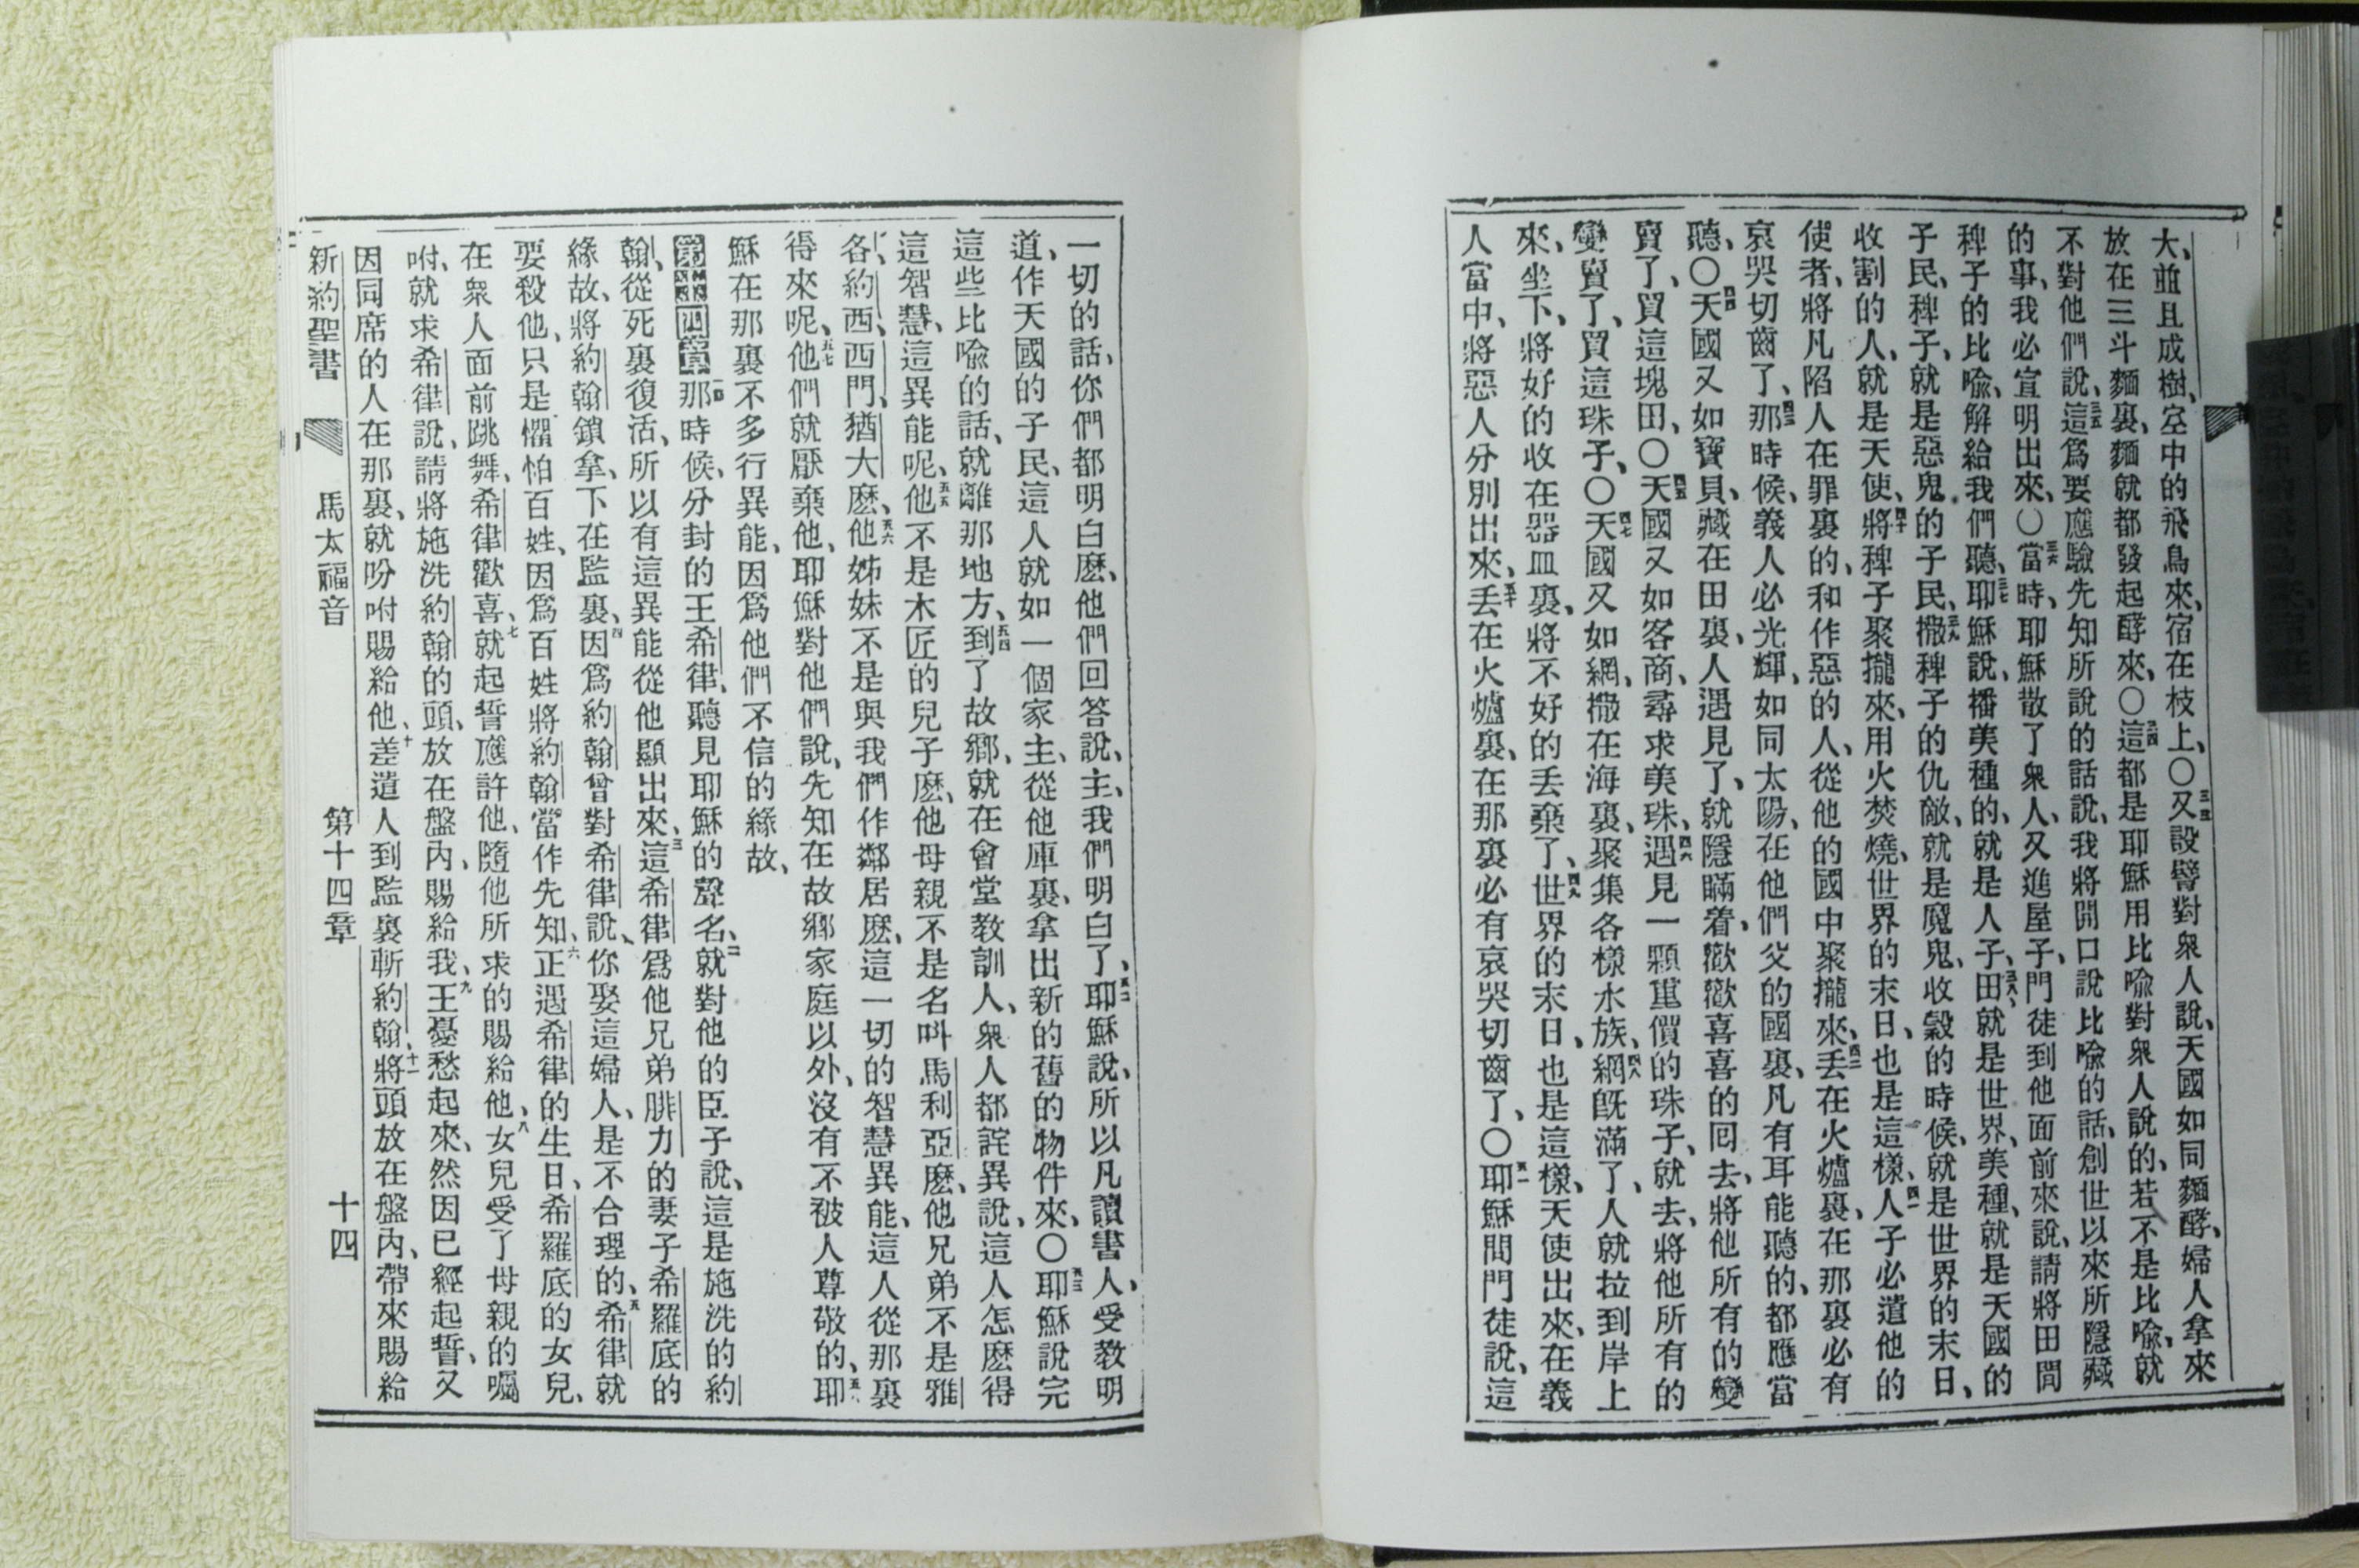 大、並且成樹、空中的飛鳥來、宿在枝上、〇三三又設譬對衆人說、天國如同麵酵、婦人拿來
放在三斗麵裏、麵就都發起酵來、〇三四這都是耶穌用比喩對衆人說的、若不是比喩、就
不對他們說、三五這爲要應驗先知所說的話說、我將開口說比喩的話、創世以來所隱藏
的事、我必宣明出來、〇三六當時、耶穌散了衆人、又進屋子、門徒到他面前來說、請將田間
稗子的比喩、解給我們聽、三七耶穌說、播美種的、就是人子、三八田就是世界、美種、就是天國的
子民、稗子、就是惡鬼的子民、三九撒稗子的仇敵、就是魔鬼、收穀的時候、就是世界的末日、
收割的人、就是天使、四十將稗子聚攏來、用火焚燒、世界的末日、也是這樣、四一人子必遣他的
使者、將凡陷人在罪裏的、和作惡的人、從他的國中聚攏來、四二丟在火爐裏、在那裏必有
哀哭切齒了、四三那時候、義人必光輝、如同太陽、在他們父的國裏、凡有耳能聽的、都應當
聽、〇四四天國又如寶貝、藏在田裏、人遇見了、就隱瞞着、歡歡喜喜的回去、將他所有的變
賣了、買這塊田、〇四五天國又如客商、尋求美珠、四六遇見一顆重價的珠子、就去、將他所有的
變賣了、買這珠子、〇四七天國又如網、撒在海裏、聚集各樣水族、四八網旣滿了、人就拉到岸上
來、坐下、將好的收在器皿裏、將不好的丟棄了、四九世界的末日、也是這樣、天使出來、在義
人當中、將惡人分別出來、五十丟在火爐裏、在那裏必有哀哭切齒了、〇五一耶穌問門徒說、這
一切的話、你們都明白麽、他們回答說、主、我們明白了、五二耶穌說、所以凡讀書人、受教明
道、作天國的子民、這人就如一個家主、從他庫裏、拿出新的舊的物件來、〇五三耶穌說完
這些比喩的話、就離那地方、五四到了故鄉、就在會堂教訓人、衆人都詫異說、這人怎麽得
這智慧、這異能呢、五五他不是木匠的兒子麽、他母親不是名呌馬利亞麽、他兄弟不是雅
各、約西、西門、猶大麽、五六他姊妹不是與我們作鄰居麽、這一切的智慧異能、這人從那裏
得來呢、五七他們就厭棄他、耶穌對他們說、先知在故鄉家庭以外、沒有不被人尊敬的、五八耶
穌在那裏不多行異能、因爲他們不信的緣故、
第十四章一那時候、分封的王希律、聽見耶穌的聲名、二就對他的臣子說、這是施洗的約
翰、從死裏復活、所以有這異能從他顯出來、三這希律爲他兄弟腓力的妻子希羅底的
緣故、將約翰鎖拿、下在監裏、四因爲約翰曾對希律說、你娶這婦人、是不合理的、五希律就
要殺他、只是懼怕百姓、因爲百姓將約翰當作先知、六正遇希律的生日、希羅底的女兒、
在衆人面前跳舞、希律歡喜、七就起誓應許他、隨他所求的賜給他、八女兒受了母親的囑
咐、就求希律說、請將施洗約翰的頭、放在盤內、賜給我、九王憂愁起來、然因已經起誓、又
因同席的人在那裏、就吩咐賜給他、十差遣人到監裏斬約翰、十一將頭放在盤內、帶來賜給
新約聖書 馬太福音 第十四章 十四